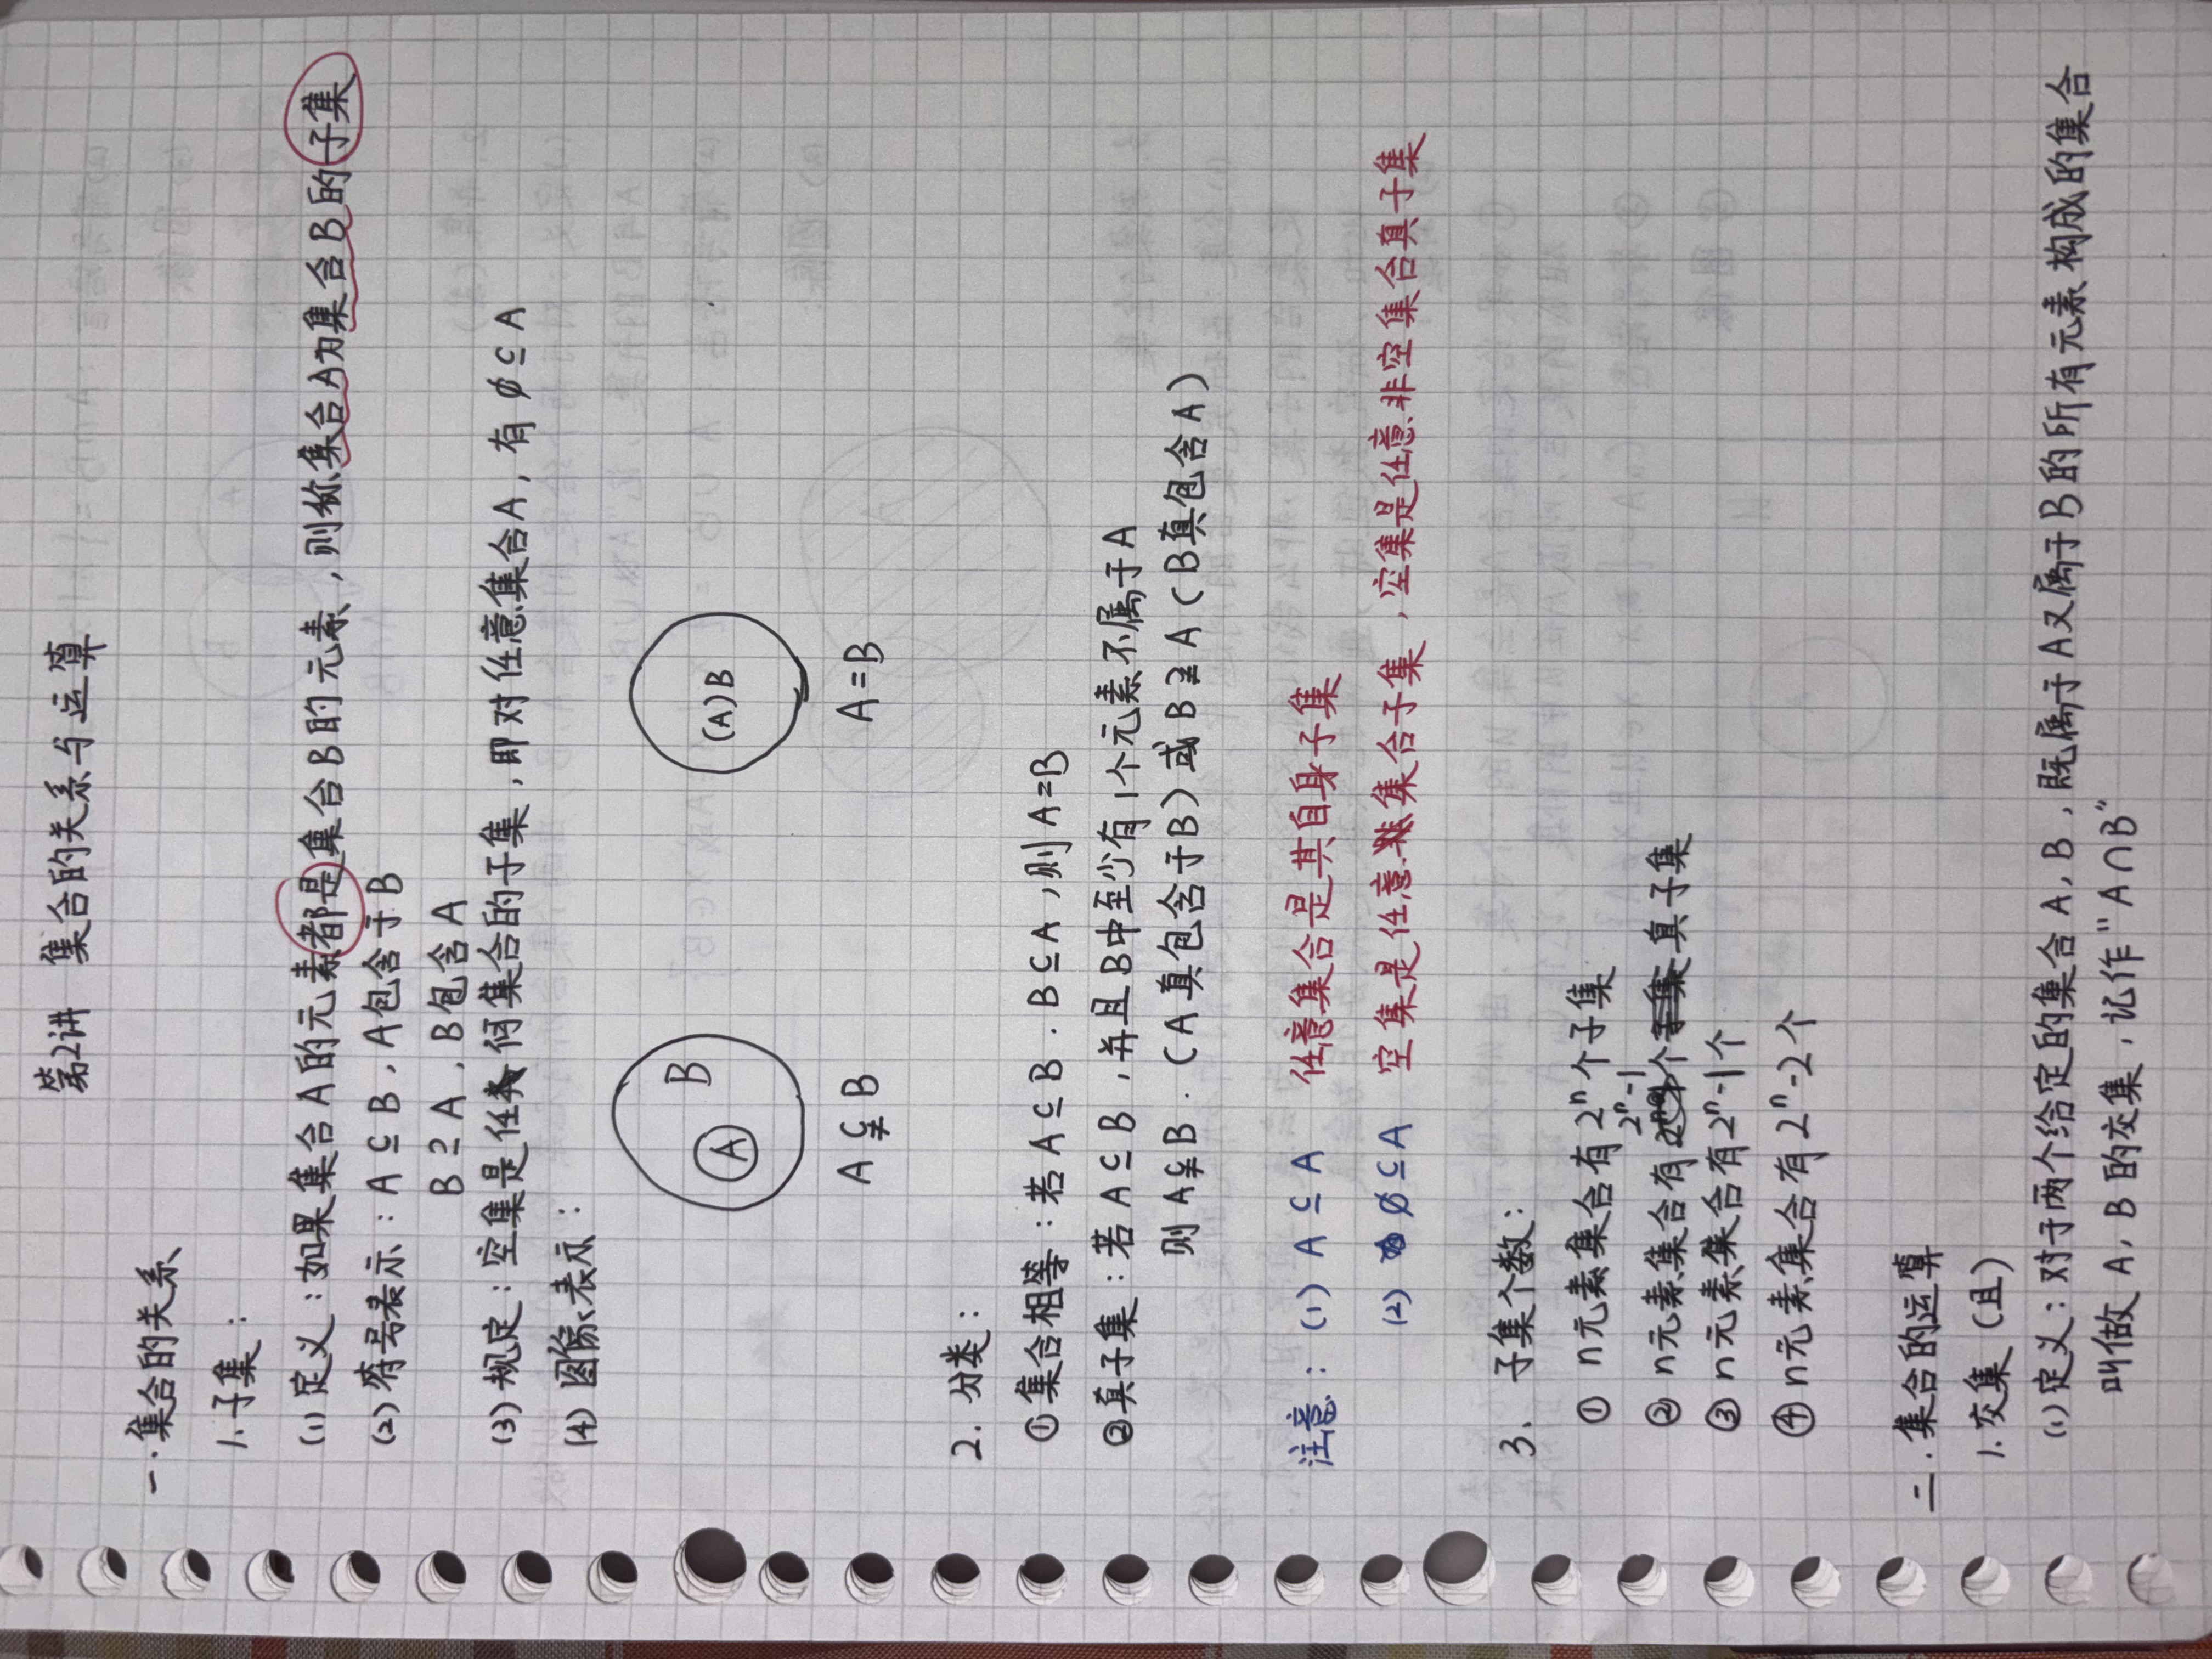 第2讲 集合的关系与运算
一.集合的关系
1.子集:
(1)定义:如果集合A的元素都是集合B的元素,则称集合A为集合B的子集
(2)符号表示:A⊆B,A包含于B
B⊇A,B包含A
(3)规定:空集是任何集合的子集,即对任意集合A,有∅⊆A
(4)图像表示:
A B
(A)B
A⫋B A=B
2.分类:
①集合相等:若A⊆B.B⊆A,则A=B
②真子集:若A⊆B,并且B中至少有1个元素不属于A
则A⫋B.(A真包含于B)或B⫌A(B真包含A)
注意:(1)A⊆A 任意集合是其自身子集
(2)∅⊆A 空集是任意集合子集,空集是任意非空集合真子集
3.子集个数:
①n元素集合有2ⁿ个子集
②n元素集合有2ⁿ-1个真子集
③n元素集合有2ⁿ-1个
④n元素集合有2ⁿ-2个
二.集合的运算
1.交集(且)
(1)定义:对于两个给定的集合A,B,既属于A又属于B的所有元素构成的集合
叫做A,B的交集,记作"A∩B"